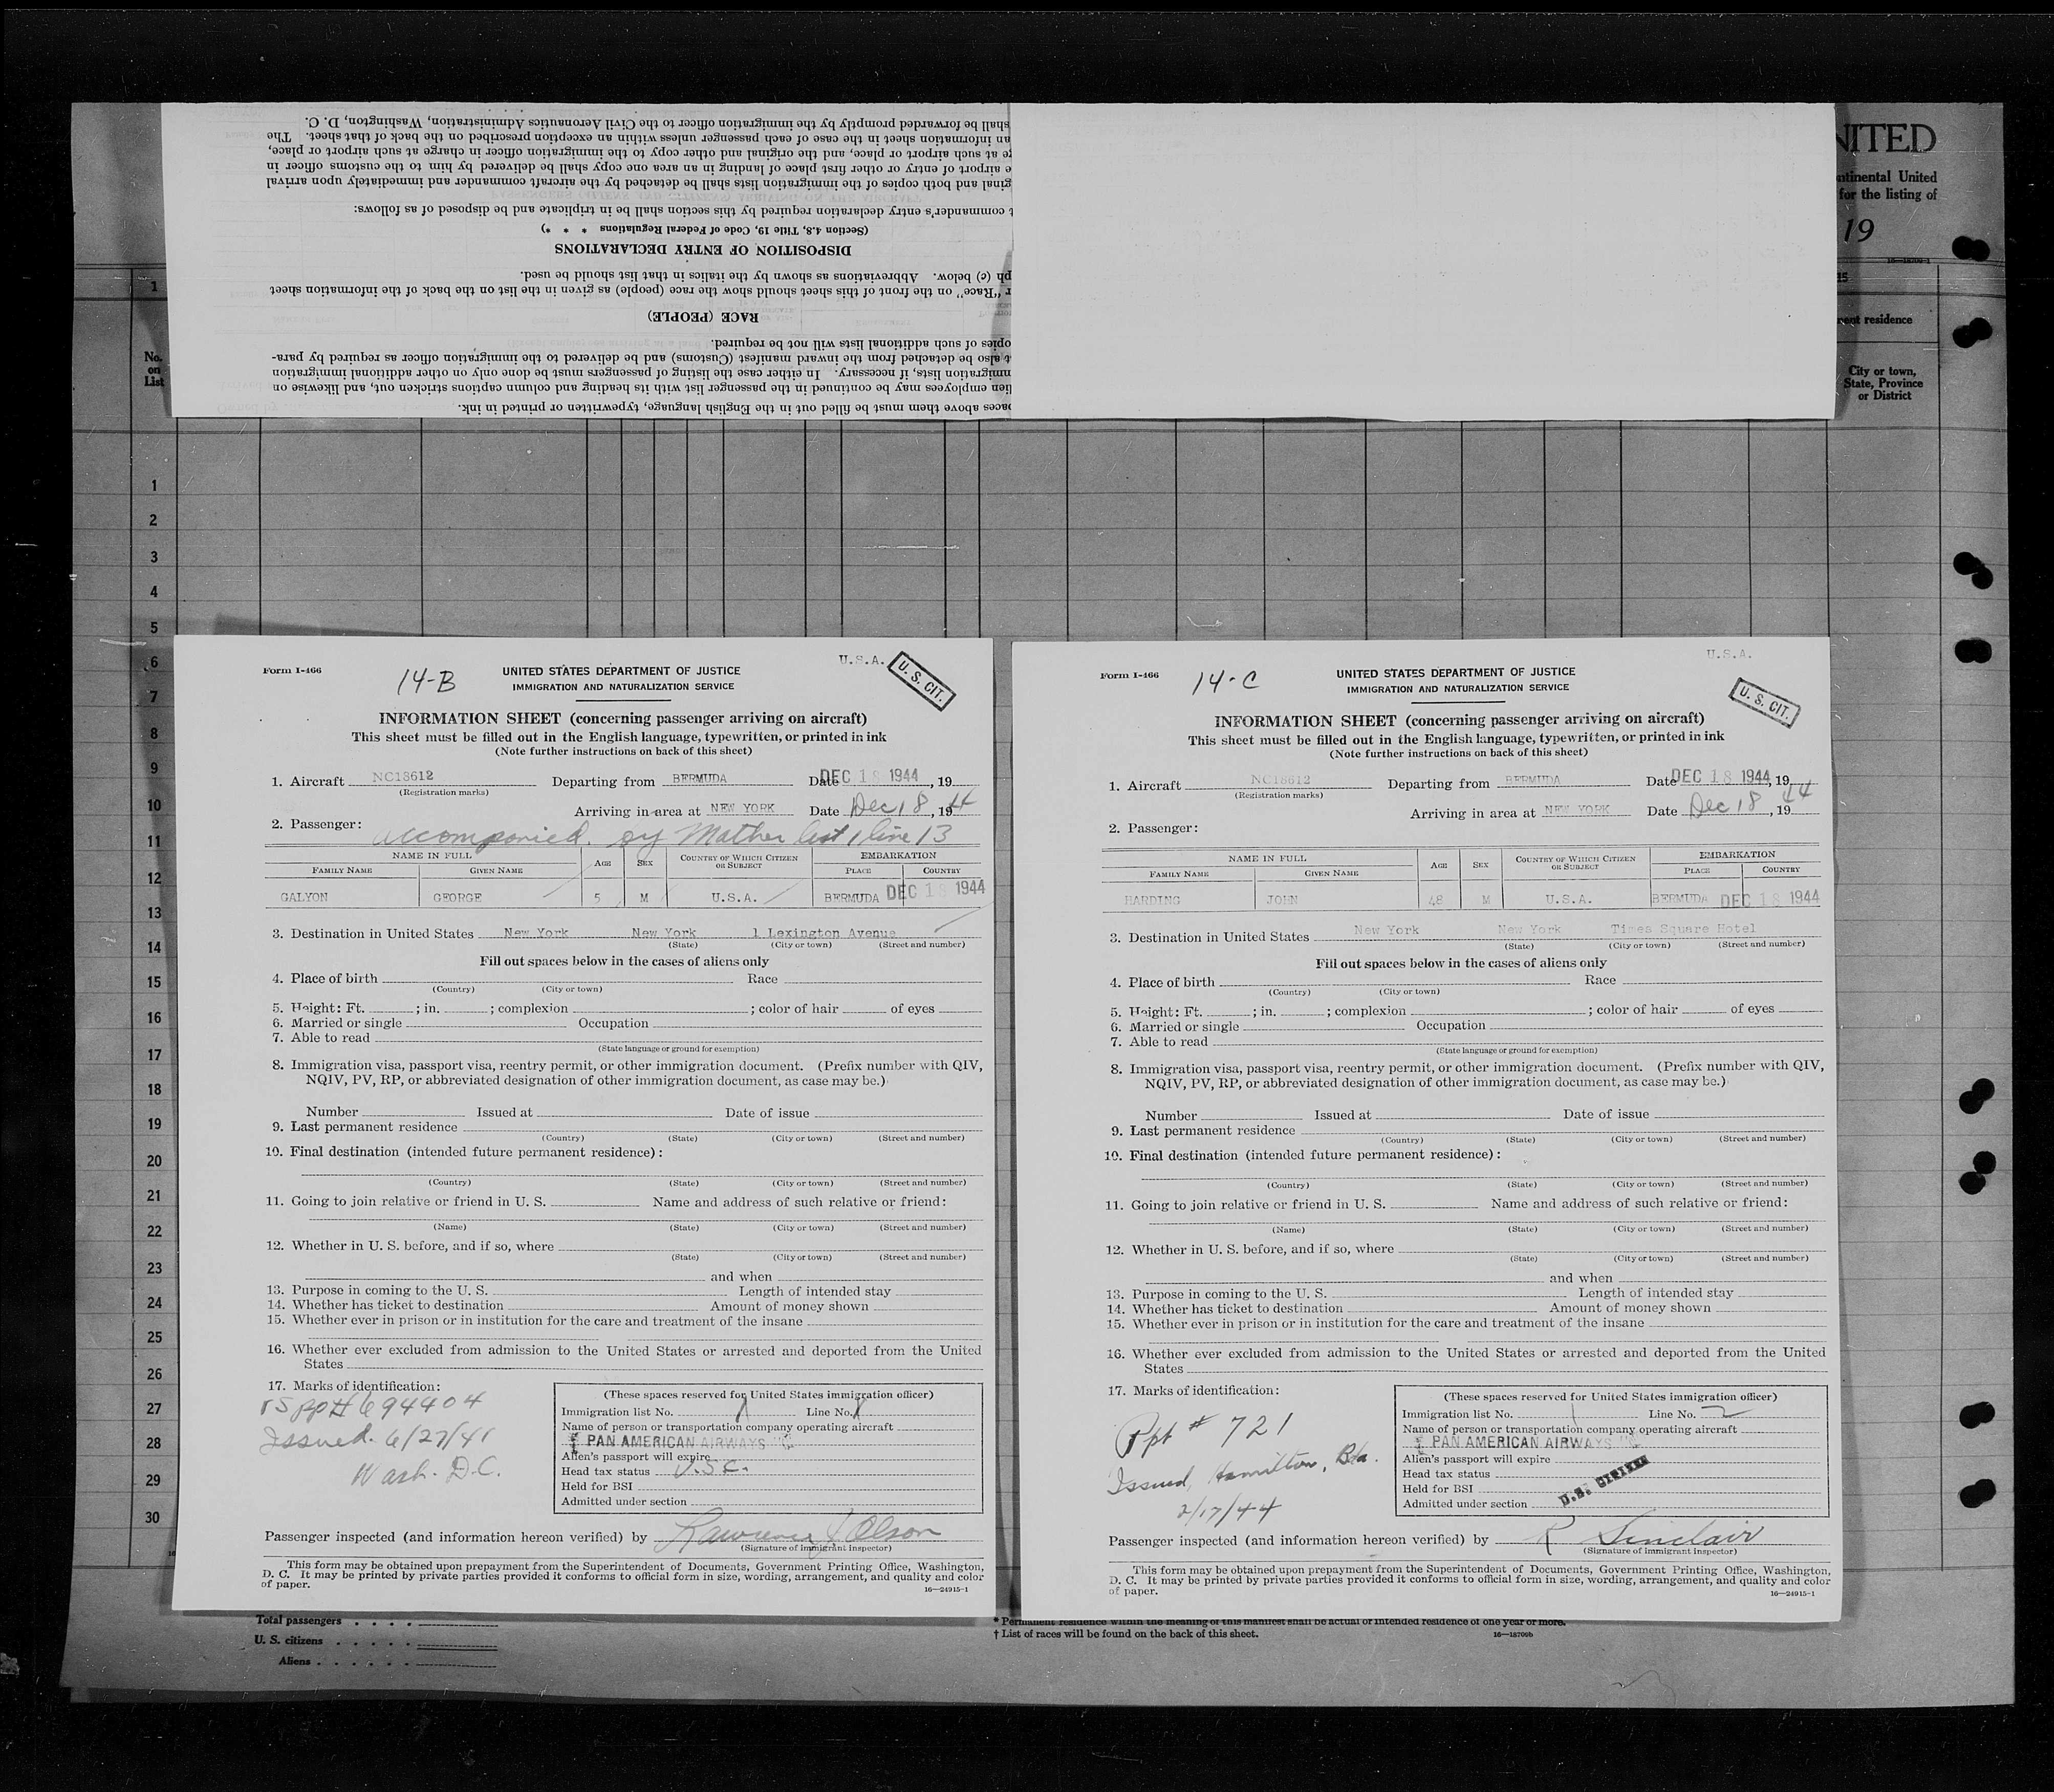 shall be forwarded promptly by the immigration officer to the Civil Aeronautics Administration, Washington, D. C.
an information sheet in the case of each passenger unless within an exception prescribed on the back of that sheet. The
at such airport or place, and the original and other copy to the immigration officer in charge at such airport or place,
airport of entry or other first place of landing in an area one copy shall be delivered by him to the customs officer in
and both copies of the immigration lists shall be detached by the aircraft commander and immediately upon arrival
commander's entry declaration required by this section shall be in triplicate and be disposed of as follows:
(Section 4.8, Title 19, Code of Federal Regulations * * *)
DISPOSITION OF ENTRY DECLARATIONS
(c) below. Abbreviations as shown by the italics in that list should be used.
"Race" on the front of this sheet should show the race (people) as given in the list on the back of the information sheet
RACE (PEOPLE)
copies of such additional lists will not be required.
also be detached from the inward manifest (Customs) and be delivered to the immigration officer as required by para-
immigration lists, if necessary. In either case the listing of passengers must be done only on other additional immigration
employees may be continued in the passenger list with its heading and column captions stricken out, and likewise on
above them must be filled out in the English language, typewritten or printed in ink.
NITED
ntinental United
for the listing of
19
1
15
residence
No. on List
City or town,
State, Province
or District
1
2
3
4
5
6
7
8
9
10
11
12
13
14
15
16
17
18
19
20
21
22
23
24
25
26
27
28
29
30
U.S.A.
U. S. CIT.
Form I-466
14-B
UNITED STATES DEPARTMENT OF JUSTICE
IMMIGRATION AND NATURALIZATION SERVICE
INFORMATION SHEET (concerning passenger arriving on aircraft)
This sheet must be filled out in the English language, typewritten, or printed in ink
(Note further instructions on back of this sheet)
1. Aircraft NC18612 Departing from BERMUDA Date DEC 18 1944, 19
(Registration marks)
Arriving in area at NEW YORK Date Dec 18, 1944
2. Passenger: accompanied by Mother list 1 line 13
NAME IN FULL AGE SEX COUNTRY OF WHICH CITIZEN OR SUBJECT EMBARKATION
FAMILY NAME GIVEN NAME PLACE COUNTRY
GALYON GEORGE 5 M U.S.A. BERMUDA DEC 18 1944
3. Destination in United States New York New York 1 Lexington Avenue
(State) (City or town) (Street and number)
Fill out spaces below in the cases of aliens only
4. Place of birth Race
(Country) (City or town)
5. Height: Ft. ; in. ; complexion ; color of hair of eyes
6. Married or single Occupation
7. Able to read
(State language or ground for exemption)
8. Immigration visa, passport visa, reentry permit, or other immigration document. (Prefix number with QIV,
NQIV, PV, RP, or abbreviated designation of other immigration document, as case may be.)
Number Issued at Date of issue
9. Last permanent residence
(Country) (State) (City or town) (Street and number)
10. Final destination (intended future permanent residence):
(Country) (State) (City or town) (Street and number)
11. Going to join relative or friend in U. S. Name and address of such relative or friend:
(Name) (State) (City or town) (Street and number)
12. Whether in U. S. before, and if so, where
(State) (City or town) (Street and number)
and when
13. Purpose in coming to the U. S. Length of intended stay
14. Whether has ticket to destination Amount of money shown
15. Whether ever in prison or in institution for the care and treatment of the insane
16. Whether ever excluded from admission to the United States or arrested and deported from the United
States
17. Marks of identification:
pp# 694404
Issued 6/27/41
Wash. D.C.
(These spaces reserved for United States immigration officer)
Immigration list No. Line No.
Name of person or transportation company operating aircraft
PAN AMERICAN AIRWAYS
Alien's passport will expire
Head tax status U.S.C.
Held for BSI
Admitted under section
Passenger inspected (and information hereon verified) by Lawrence J. Olson
(Signature of immigrant inspector)
This form may be obtained upon prepayment from the Superintendent of Documents, Government Printing Office, Washington,
D. C. It may be printed by private parties provided it conforms to official form in size, wording, arrangement, and quality and color
of paper.
16—24915-1
U.S.A.
U. S. CIT.
Form I-466
14-C
UNITED STATES DEPARTMENT OF JUSTICE
IMMIGRATION AND NATURALIZATION SERVICE
INFORMATION SHEET (concerning passenger arriving on aircraft)
This sheet must be filled out in the English language, typewritten, or printed in ink
(Note further instructions on back of this sheet)
1. Aircraft NC18612 Departing from BERMUDA Date DEC 18 1944, 19
(Registration marks)
Arriving in area at NEW YORK Date Dec 18, 1944
2. Passenger:
NAME IN FULL AGE SEX COUNTRY OF WHICH CITIZEN OR SUBJECT EMBARKATION
FAMILY NAME GIVEN NAME PLACE COUNTRY
HARDING JOHN 48 M U.S.A. BERMUDA DEC 18 1944
3. Destination in United States New York New York Times Square Hotel
(State) (City or town) (Street and number)
Fill out spaces below in the cases of aliens only
4. Place of birth Race
(Country) (City or town)
5. Height: Ft. ; in. ; complexion ; color of hair of eyes
6. Married or single Occupation
7. Able to read
(State language or ground for exemption)
8. Immigration visa, passport visa, reentry permit, or other immigration document. (Prefix number with QIV,
NQIV, PV, RP, or abbreviated designation of other immigration document, as case may be.)
Number Issued at Date of issue
9. Last permanent residence
(Country) (State) (City or town) (Street and number)
10. Final destination (intended future permanent residence):
(Country) (State) (City or town) (Street and number)
11. Going to join relative or friend in U. S. Name and address of such relative or friend:
(Name) (State) (City or town) (Street and number)
12. Whether in U. S. before, and if so, where
(State) (City or town) (Street and number)
and when
13. Purpose in coming to the U. S. Length of intended stay
14. Whether has ticket to destination Amount of money shown
15. Whether ever in prison or in institution for the care and treatment of the insane
16. Whether ever excluded from admission to the United States or arrested and deported from the United
States
17. Marks of identification:
Ppt # 721
Issued, Hamilton, Bda.
2/17/44
(These spaces reserved for United States immigration officer)
Immigration list No. 1 Line No. 2
Name of person or transportation company operating aircraft
PAN AMERICAN AIRWAYS
Alien's passport will expire
Head tax status
Held for BSI
Admitted under section U.S. CITIZEN
Passenger inspected (and information hereon verified) by R Sinclair
(Signature of immigrant inspector)
This form may be obtained upon prepayment from the Superintendent of Documents, Government Printing Office, Washington,
D. C. It may be printed by private parties provided it conforms to official form in size, wording, arrangement, and quality and color
of paper.
16—24915-1
Total passengers . . . .
U. S. citizens . . . . .
Aliens . . . . . .
* Permanent residence within the meaning of this manifest shall be actual or intended residence of one year or more.
† List of races will be found on the back of this sheet.
16—18709b